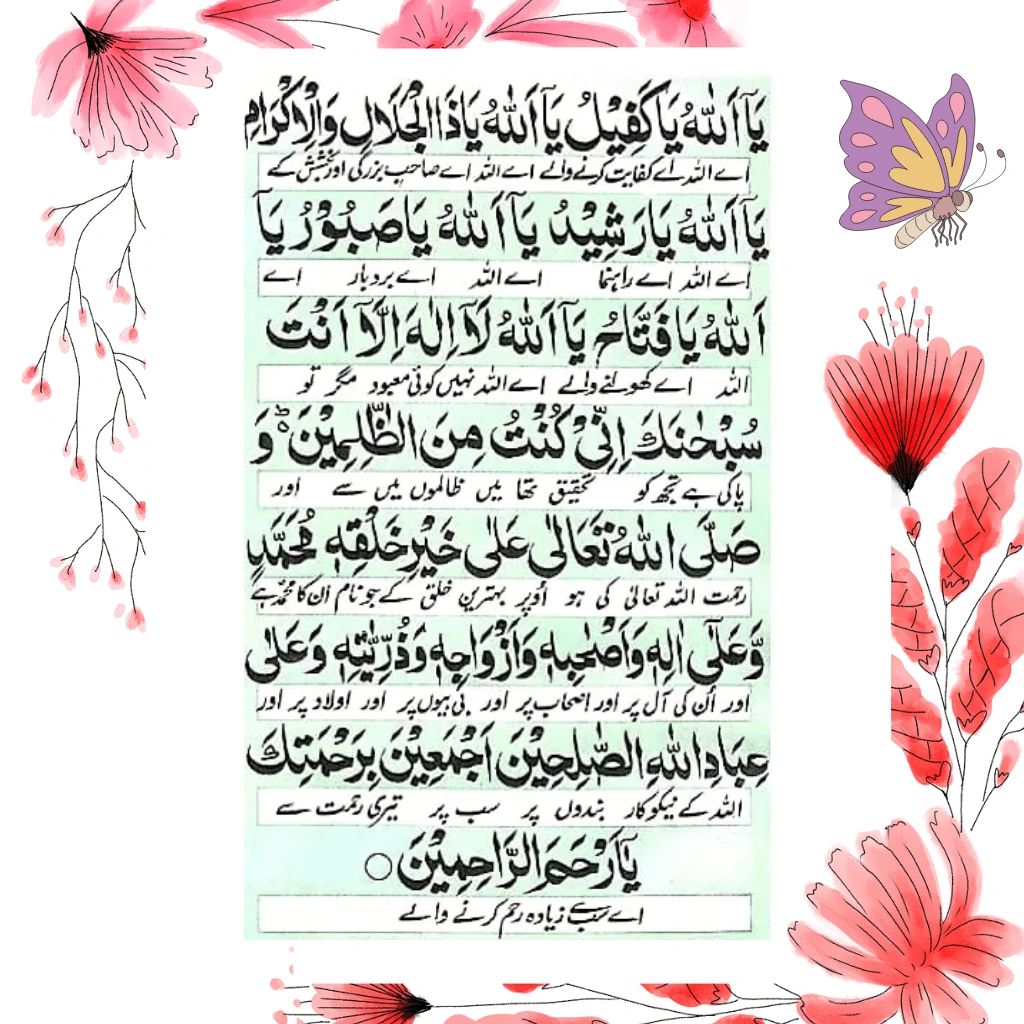 يَآ اَللّٰهُ يَا كَفِيْلُ يَآ اَللّٰهُ يَا ذَا الْجَلَالِ وَالْاِكْرَامِ
اے اللہ اے کفایت کرنے والے اے اللہ اے صاحب بزرگی اور بخشش کے
يَآ اَللّٰهُ يَا رَشِيْدُ يَآ اَللّٰهُ يَا صَبُوْرُ يَآ
اے اللہ اے راہنما اے اللہ اے بردبار اے
اَللّٰهُ يَا فَتَّاحُ يَآ اَللّٰهُ لَآ اِلٰهَ اِلَّآ اَنْتَ
اللہ اے کھولنے والے اے اللہ نہیں کوئی معبود مگر تو
سُبْحٰنَكَ اِنِّيْ كُنْتُ مِنَ الظّٰلِمِيْنَ ؕ وَ
پاکی ہے تجھ کو تحقیق تھا میں ظالموں میں سے اور
صَلَّى اللّٰهُ تَعَالٰى عَلٰى خَيْرِ خَلْقِهٖ مُحَمَّدٍ
رحمت اللہ تعالیٰ کی ہو اُوپر بہترین خلق کے جو نام اُن کا محمدؐ ہے
وَّعَلٰٓى اٰلِهٖ وَاَصْحٰبِهٖ وَاَزْوَاجِهٖ وَذُرِّيّٰتِهٖ وَعَلٰى
اور اُن کی آل پر اور اصحاب پر اور بی بیوں پر اور اولاد پر اور
عِبَادِ اللّٰهِ الصّٰلِحِيْنَ اَجْمَعِيْنَ بِرَحْمَتِكَ
اللہ کے نیکوکار بندوں پر سب پر تیری رحمت سے
يَآ اَرْحَمَ الرَّاحِمِيْنَ ○
اے سب سے زیادہ رحم کرنے والے